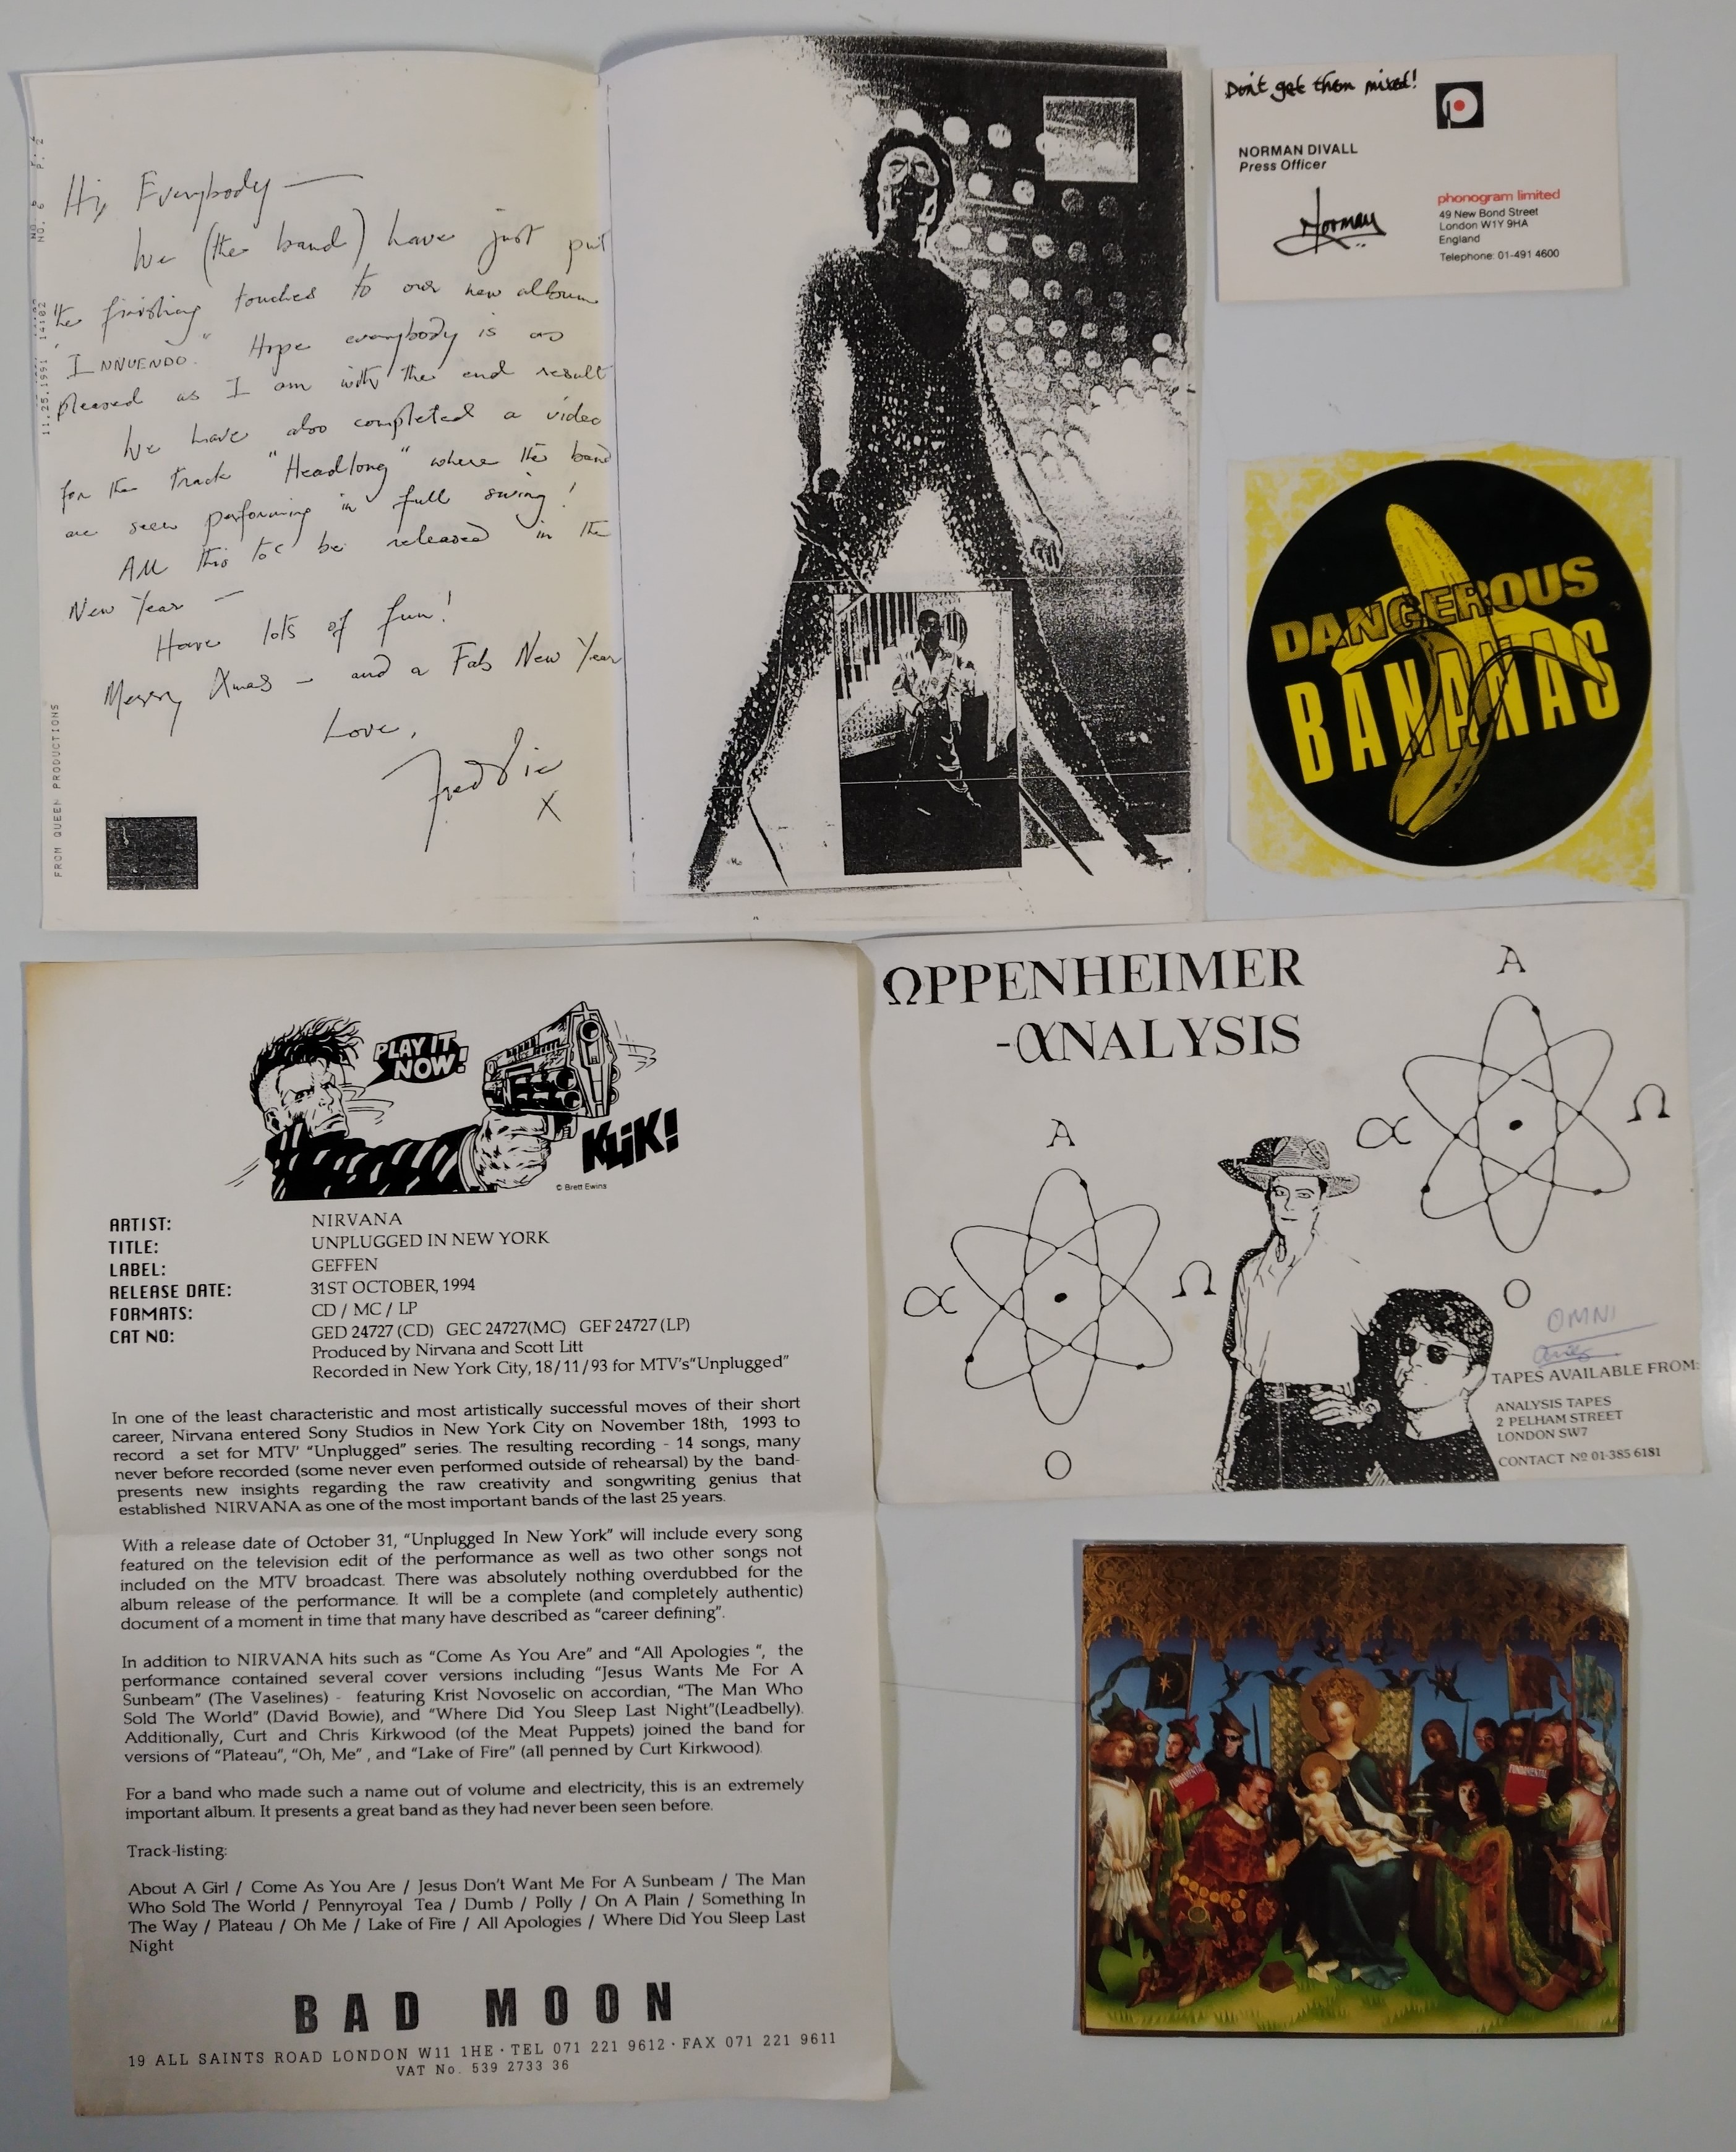 Hi, Everybody —
We (the band) have just put
the finishing touches to our new album
"INNUENDO." Hope everybody is as
pleased as I am with the end result
We have also completed a video
for the track "Headlong" where the band
are seen performing in full swing!
All this to be released in the
New Year —
Have lots of fun!
Merry Xmas — and a Fab New Year
Love,
Freddie
X
NO. 6 P. 2
11.25.1991 14:02
FROM QUEEN PRODUCTIONS
Don't get them mixed!
NORMAN DIVALL
Press Officer
Norman
phonogram limited
49 New Bond Street
London W1Y 9HA
England
Telephone: 01-491 4600
DANGEROUS
BANANAS
PLAY IT
NOW!
KLIK!
© Brett Ewins
ARTIST: NIRVANA
TITLE: UNPLUGGED IN NEW YORK
LABEL: GEFFEN
RELEASE DATE: 31ST OCTOBER, 1994
FORMATS: CD / MC / LP
CAT NO: GED 24727 (CD) GEC 24727(MC) GEF 24727 (LP)
Produced by Nirvana and Scott Litt
Recorded in New York City, 18/11/93 for MTV's"Unplugged"
In one of the least characteristic and most artistically successful moves of their short
career, Nirvana entered Sony Studios in New York City on November 18th, 1993 to
record a set for MTV' "Unplugged" series. The resulting recording - 14 songs, many
never before recorded (some never even performed outside of rehearsal) by the band-
presents new insights regarding the raw creativity and songwriting genius that
established NIRVANA as one of the most important bands of the last 25 years.
With a release date of October 31, "Unplugged In New York" will include every song
featured on the television edit of the performance as well as two other songs not
included on the MTV broadcast. There was absolutely nothing overdubbed for the
album release of the performance. It will be a complete (and completely authentic)
document of a moment in time that many have described as "career defining".
In addition to NIRVANA hits such as "Come As You Are" and "All Apologies ", the
performance contained several cover versions including "Jesus Wants Me For A
Sunbeam" (The Vaselines) - featuring Krist Novoselic on accordian, "The Man Who
Sold The World" (David Bowie), and "Where Did You Sleep Last Night"(Leadbelly).
Additionally, Curt and Chris Kirkwood (of the Meat Puppets) joined the band for
versions of "Plateau", "Oh, Me" , and "Lake of Fire" (all penned by Curt Kirkwood).
For a band who made such a name out of volume and electricity, this is an extremely
important album. It presents a great band as they had never been seen before.
Track-listing:
About A Girl / Come As You Are / Jesus Don't Want Me For A Sunbeam / The Man
Who Sold The World / Pennyroyal Tea / Dumb / Polly / On A Plain / Something In
The Way / Plateau / Oh Me / Lake of Fire / All Apologies / Where Did You Sleep Last
Night
BAD MOON
19 ALL SAINTS ROAD LONDON W11 1HE · TEL 071 221 9612 · FAX 071 221 9611
VAT No. 539 2733 36
ΩPPENHEIMER
-αNALYSIS
A
α
Ω
O
A
α
Ω
O
OMNI
TAPES AVAILABLE FROM:
ANALYSIS TAPES
2 PELHAM STREET
LONDON SW7
CONTACT Nº 01-385 6181
FUNDAMENTAL
FUNDAMENTAL